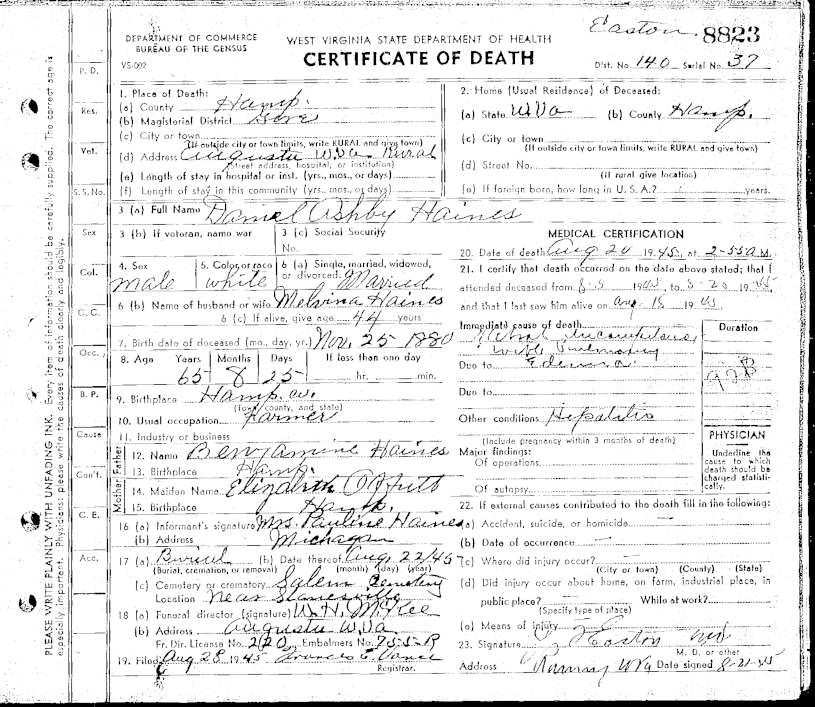 Easton 8823
DEPARTMENT OF COMMERCE
BUREAU OF THE CENSUS
VS-002
WEST VIRGINIA STATE DEPARTMENT OF HEALTH
CERTIFICATE OF DEATH
Dist. No. 140 Serial No. 37
PLEASE WRITE PLAINLY WITH UNFADING INK. Every item of information should be carefully supplied. The correct age is
especially important. Physicians: please write the causes of death clearly and legibly.
P. D.
Res.
Vet.
S. S. No.
Sex
Col.
C. C.
Occ.
B. P.
Cause
Con't.
C. E.
Acc.
1. Place of Death:
(a) County Hamp.
(b) Magisterial District Gore
(c) City or town
(If outside city or town limits, write RURAL and give town)
(d) Address Augusta W.Va. Rural
(Street address, hospital, or institution)
(e) Length of stay in hospital or inst. (yrs., mos., or days)
(f) Length of stay in this community (yrs., mos., or days)
2. Home (Usual Residence) of Deceased:
(a) State W.Va (b) County Hamp.
(c) City or town
(If outside city or town limits, write RURAL and give town)
(d) Street No.
(If rural give location)
(e) If foreign born, how long in U. S. A.? years.
3 (a) Full Name Daniel Ashby Haines
3 (b) If veteran, name war
3 (c) Social Security
No.
4. Sex
male
5. Color or race
white
6 (a) Single, married, widowed,
or divorced. Married
6 (b) Name of husband or wife Melvina Haines
6 (c) If alive, give age 44 years
7. Birth date of deceased (mo., day, yr.) Nov. 25 1880
8. Age Years Months Days If less than one day
65 8 25 hr. min.
9. Birthplace Hamp. Co.
(Town, county, and state)
10. Usual occupation Farmer
11. Industry or business
Father
12. Name Benjamine Haines
13. Birthplace Hamp.
Mother
14. Maiden Name Elizabeth Offutt
15. Birthplace Hamp.
16 (a) Informant's signature Mrs. Pauline Haines
(b) Address Michagan
17 (a) Buriel (b) Date thereof Aug 22/45
(Burial, cremation, or removal) (month) (day) (year)
(c) Cemetery or crematory Salem Cemetery
Location Near Slanesville
18 (a) Funeral director (signature) W. H. McKee
(b) Address Augusta W.Va
Fr. Dir. License No. 220 Embalmers No. 755-R
19. Filed Aug 28 1945 Frances E. Vance
Registrar.
MEDICAL CERTIFICATION
20. Date of death Aug 20 1945, at 2-55 A.M.
21. I certify that death occurred on the date above stated; that I
attended deceased from 8-5 1945 to 8-20 1945
and that I last saw him alive on Aug. 18 1945
Immediate cause of death
Duration
with Pulmonary
Due to Edema
92B
Due to
Other conditions Hepatitis
(Include pregnancy within 3 months of death)
Major findings:
Of operations
Of autopsy
PHYSICIAN
Underline the
cause to which
death should be
charged statisti-
cally.
22. If external causes contributed to the death fill in the following:
(a) Accident, suicide, or homicide
(b) Date of occurrence
(c) Where did injury occur?
(City or town) (County) (State)
(d) Did injury occur about home, on farm, industrial place, in
public place? While at work?
(Specify type of place)
(e) Means of injury
23. Signature Easton MD
M. D. or other
Address Romney W Va Date signed 8-21-45